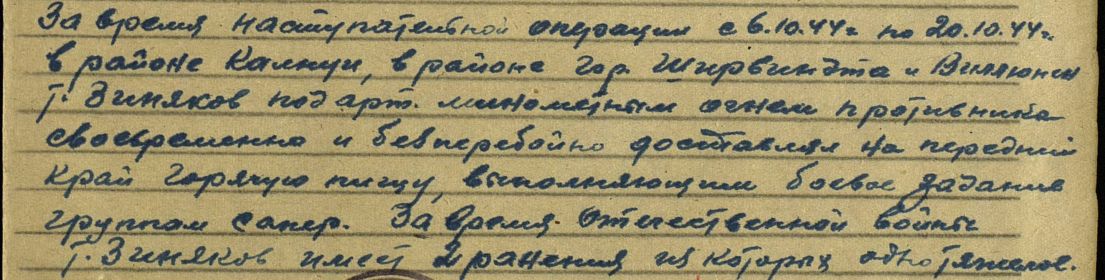 За время наступательной операции с 6.10.44г по 20.10.44г.
в районе Калнуи, в районе гор. Ширвиндта и
т. Зиняков под арт. минометным огнем противника
своевременно и бесперебойно доставлял на передний
край горячую пищу, выполняющим боевое задание
группам сапер. За время Отечественной войны
т. Зиняков имеет 2 ранения из которых одно тяжелое.